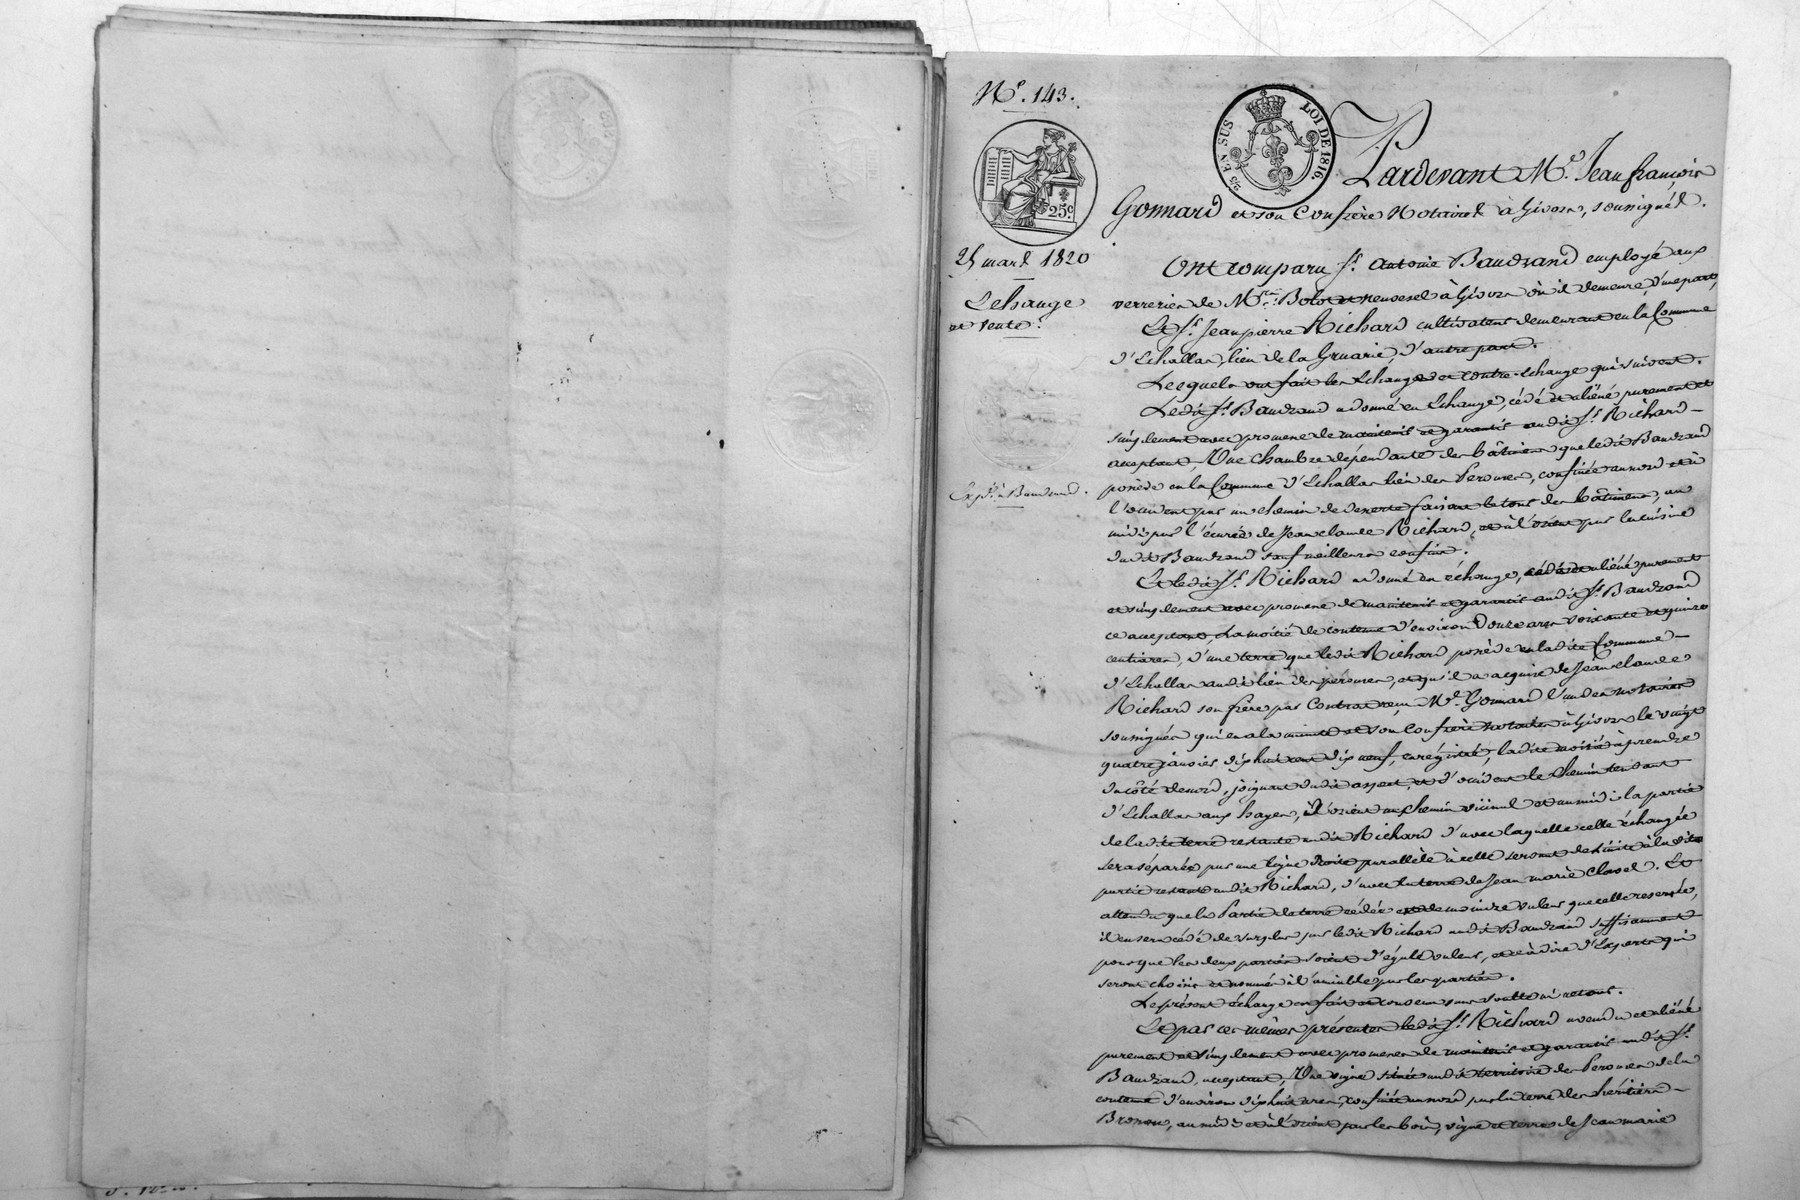 N.º 143.
⅖ EN SUS LOI DE 1816.
25.c
25 mars 1820
Echange
et vente.
Exp.on à Baudrand.
Pardevant M.e Jean françois
Gonnard et son Confrère Notaires à Givors, soussignés.
Ont comparu S.r Antoine Baudrand employé aux
verreries de M.rs Bolot et neuvesel à Givors où il demeure, d'une part,
Et S.r Jean pierre Richard cultivateur demeurant en la Commune
d'Echallas, lieu de la Gruarie, d'autre part.
Lesquels ont fait les Echanges et contre-échange qui suivent.
Ledit S.r Baudrand a donné en Echange, cédé et aliéné purement et
simplement avec promesse de maintenir et garantir audit S.r Richard
acceptant, Une chambre dépendante des bâtimens que ledit Baudrand
possède en la Commune d'Echallas lieu des Perouses, confinée au nord et à
l'occident par un chemin de deserte faisant le tour des bâtimens, au
midi par l'écurie de Jean claude Richard, et à l'orient par la cuisine
dudit Baudrand sauf meilleurs confins.
Et ledit S.r Richard a donné en échange, cédé et aliéné purement
et simplement avec promesse de maintenir et garantir audit S.r Baudrand
ce acceptant, La moitié de contenue d'environ Douze ares soixante et quinze
centiares, d'une terre que ledit Richard possède en ladite Commune
d'Echallas audit lieu des perouses, et qu'il a acquise de Jean claude
Richard son frère par Contrat reçu M.e Gonnard l'un des notaires
soussignés qui en a la minute et son confrère notaires à Givors le vingt
quatre janvier dix huit cent dix neuf, enrégistré, ladite moitié à prendre
du côté de nord, joignant dudit aspect, et d'occident le chemin tendant
d'Echallas aux hayes, d'orient un chemin vicinal et au midi la partie
de ladite terre restante audit Richard d'avec laquelle celle échangée
sera séparée par une ligne droite parallèle à celle servant de limite à ladite
partie restant audit Richard, d'avec la terre de Jean marie Clavel. Et
attendu que la Partie de terre cédée est de moindre valeur que celle reservée,
il en sera cédé de surplus par ledit Richard audit Baudrand suffisamment
pour que les deux parties soient d'égale valeur, et ce à dire d'Experts qui
seront choisis et nommés à l'amiable par les parties.
Le présent échange est fait et consenti sans soulte ni retour.
Et par ces mêmes présentes ledit S.r Richard a vendu et aliéné
purement et simplement avec promesse de maintenir et garantir audit S.r
Baudrand, acceptant, Une vigne située audit territoire des Perouses de la
contenue d'environ dix huit ares, confinée au nord par la terre des héritiers
Bronou, au midi et à l'orient par les bois, vigne et terres de Jean marie